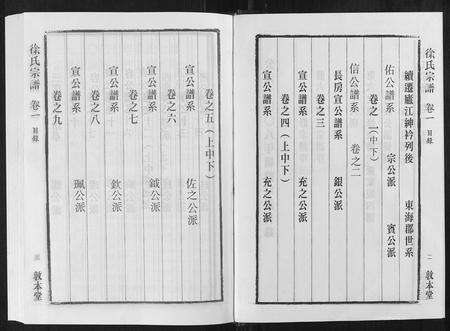 徐氏宗譜 卷一 目錄 二 敦本堂
續遷廬江紳衿列後 東海郡世系
佑公譜系 宗公派 賓公派
卷之一(中下)
信公譜系 卷之二
長房宣公譜系 銀公派
卷之三
宣公譜系 充之公派
卷之四(上中下)
宣公譜系 充之公派
卷之五(上中下)
宣公譜系 佐之公派
卷之六
宣公譜系 鉞公派
卷之七
宣公譜系 欽公派
卷之八
宣公譜系 珮公派
卷之九
徐氏宗譜 卷一 目錄 三 敦本堂